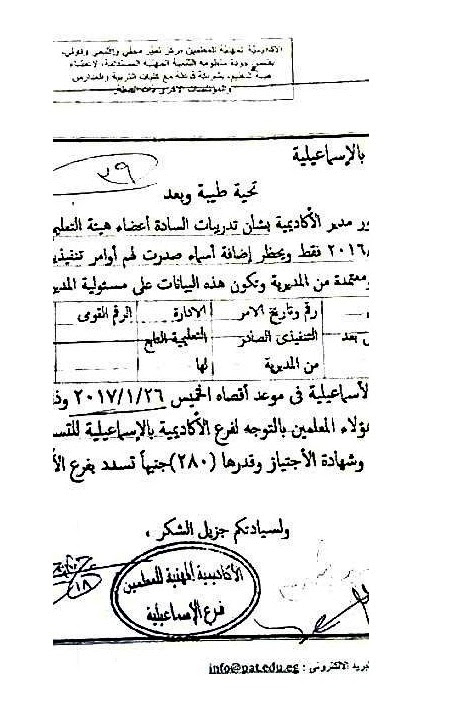 الأكاديمية المهنية للمعلمين مركز تميز محلي وإقليمي ودولي،
يضمن جودة منظومة التنمية المهنية المستدامة، لأعضاء
هيئة التعليم، بشراكة فاعلة مع كليات التربية والمدارس
والمؤسسات الأخرى ذات الصلة.
بالإسماعيلية
٣٩
تحية طيبة وبعد
ور مدير الأكاديمية بشأن تدريبات السادة أعضاء هيئة التعليم
٢٠١٦/ فقط ويحظر إضافة أسماء صدرت لهم أوامر تنفيذي
ومعتمدة من المديرية وتكون هذه البيانات على مسئولية المدير
بعد
رقم وتاريخ الامر التنفيذى الصادر من المديرية
الادارة التعليمية التابع لها
الرقم القومى
لأسماعيلية فى موعد أقصاه الخميس ٢٠١٧/١/٢٦ وذ
ؤلاء المعلمين بالتوجه لفرع الأكاديمية بالإسماعيلية للتس
وشهادة الأجتياز وقدرها (٢٨٠) جنيهاً تسدد بفرع الأ
ولسيادتكم جزيل الشكر ،
الأكاديمية المهنية للمعلمين
فرع الإسماعيلية
١٨
بريد الالكترونى : info@pat.edu.eg